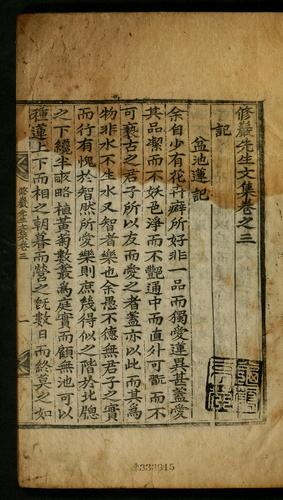 修巖先生文集卷之三
記
盆池蓮記
余自少有花卉癖所好非一品而獨愛蓮其甚蓋愛
其品潔而不妖色淨而不艷通中而直外可翫而不
可褻古之君子所以友而愛之者蓋亦以此而其爲
物非水不生水又智者樂也余愚不德無君子之實
而行有愧於智然所愛樂則庶幾得似之階於北牕
之下纔半畝略植黃菊數叢爲庭實而顧無池可以
種蓮上下而相之朝暮而營之旣數日而終莫之如
修巖先生文集卷三
一
333615